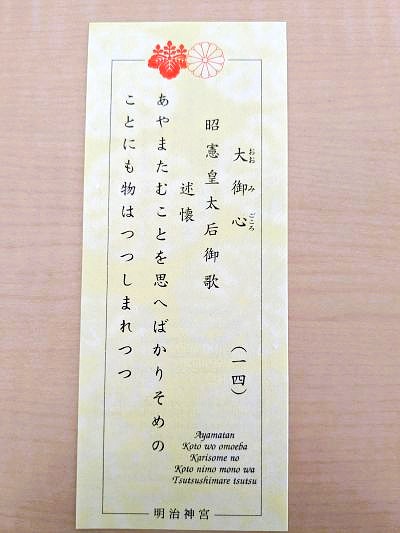 大御心
おおみごころ
昭憲皇太后御歌
(一四)
述懐
あやまたむことを思へばかりそめの
ことにも物はつつしまれつつ
Ayamatan
Koto wo omoeba
Karisome no
Koto nimo mono wa
Tsutsushimare tsutsu
明治神宮